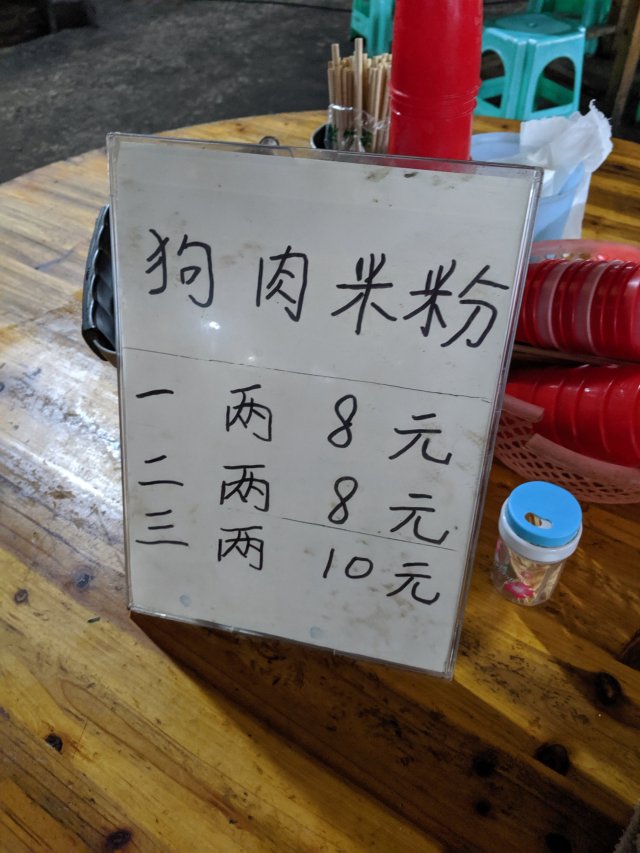 狗肉米粉
一两8元
二两8元
三两10元